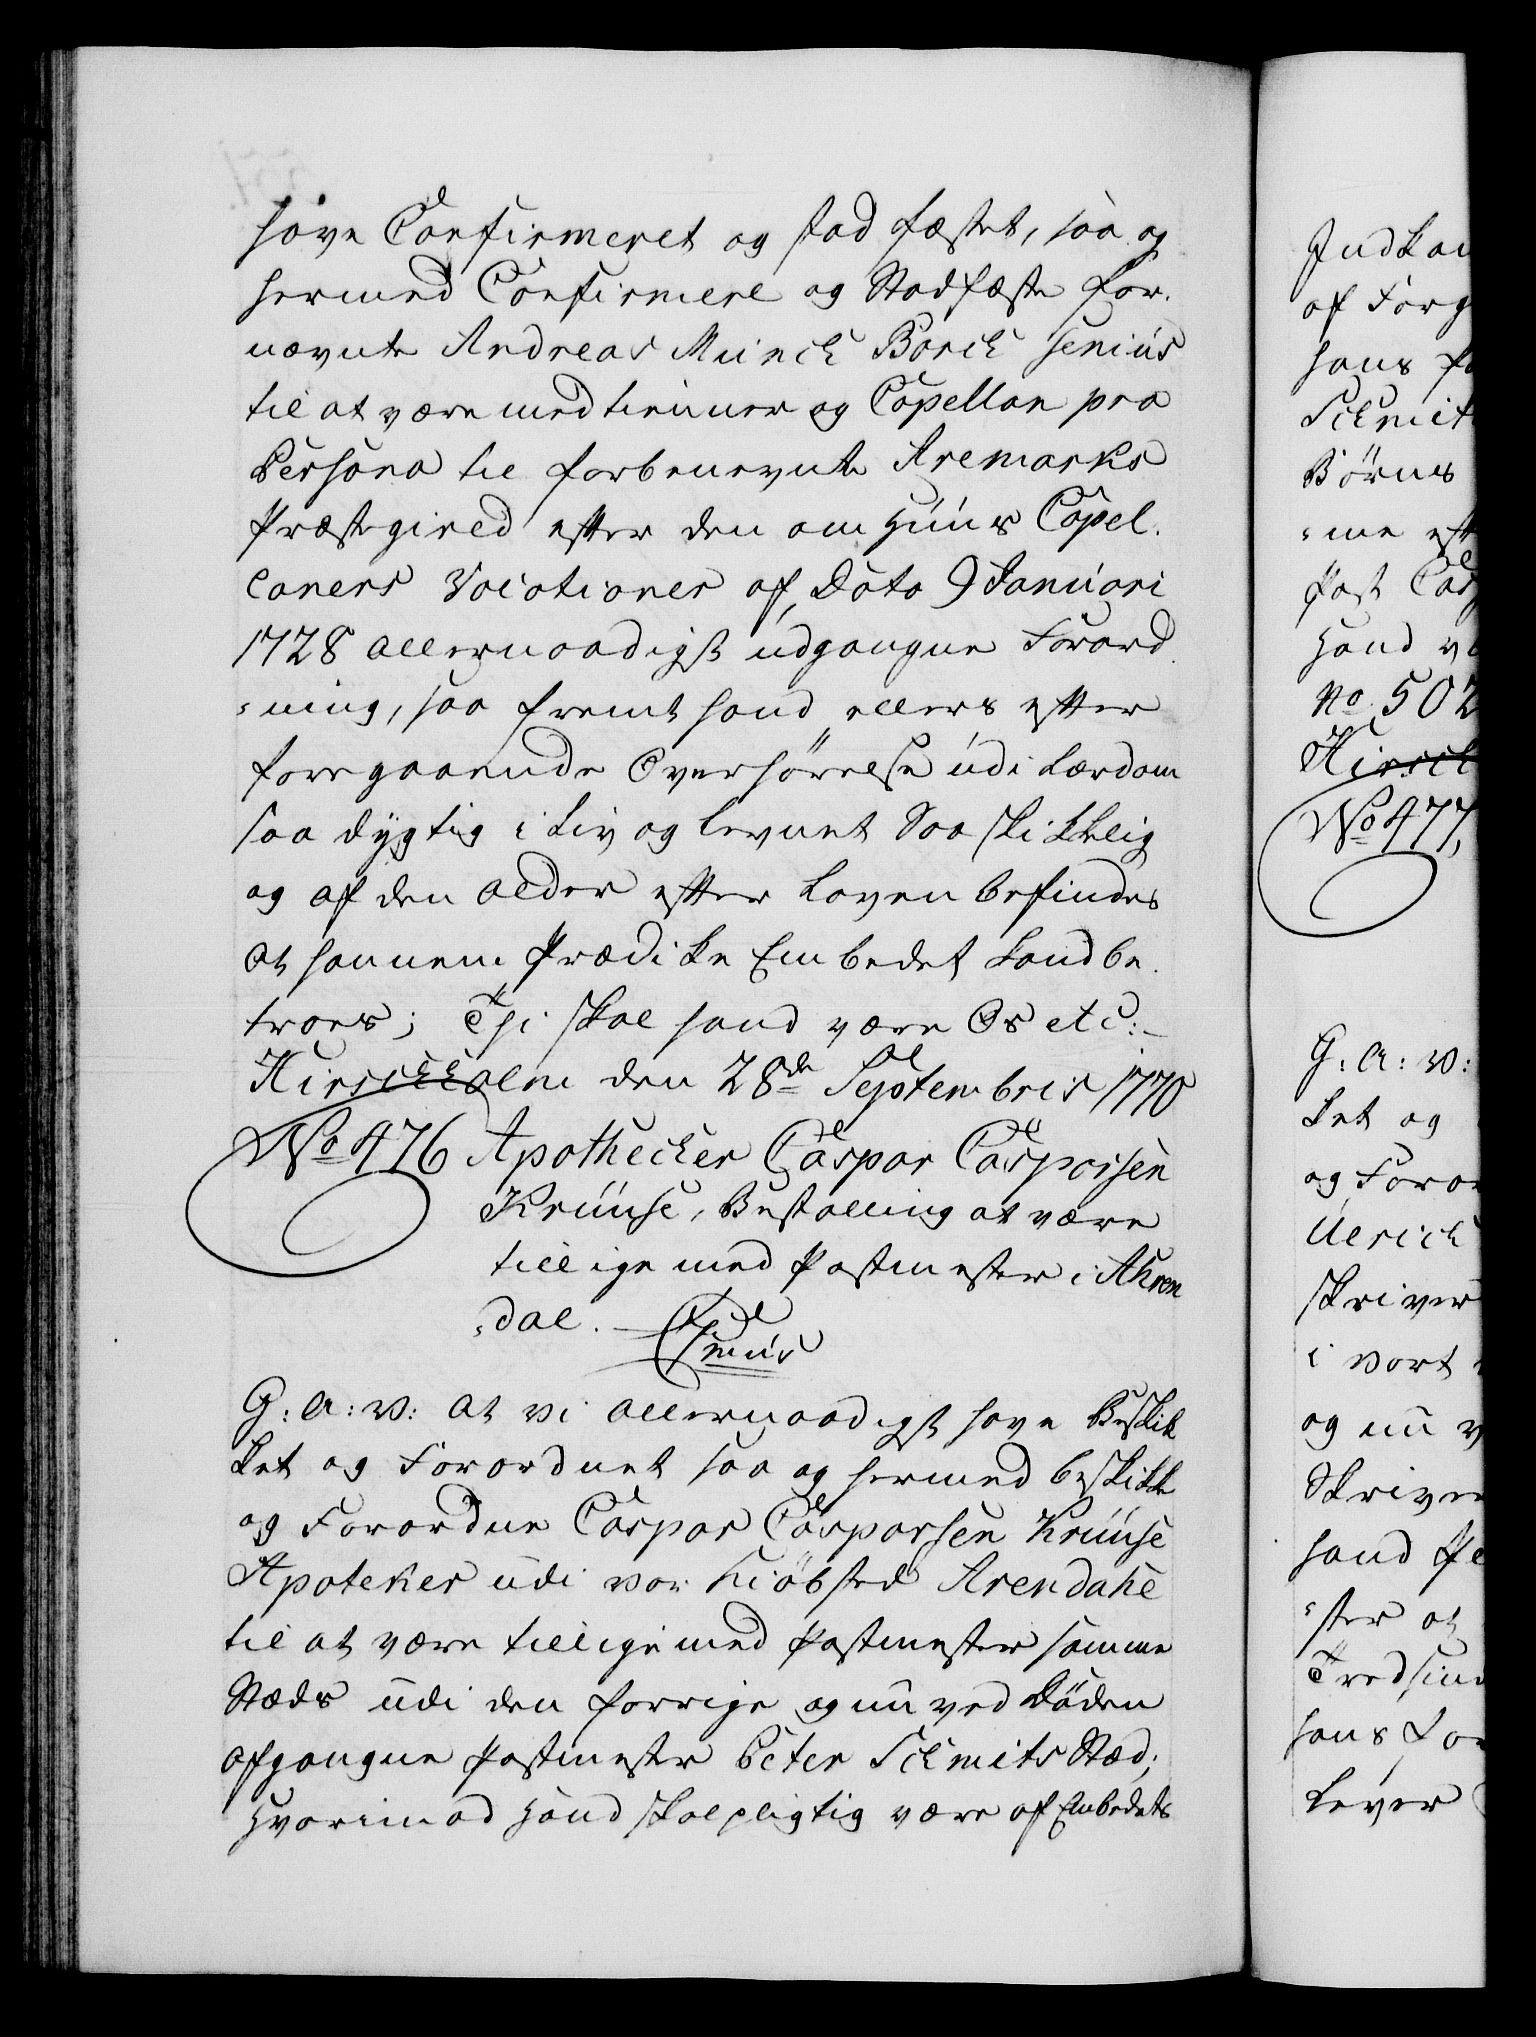 have Confirmeret og stad fæstet, saa og
hermed Confirmere og Stadfæste for.
nævnte Andreas Munch Borch Senius
til at være medtienner og Capellan pro
Persona til forbenevnte Aremarks
Præstegield efter den om Huus Capel.
laners Vocationer af Dato 9 Januari
1728 allernaadigst udgangne Forord
-ning, saa fremt hand ellers efter
foregaaende Overhørelse udi Lærdom
saa dygtig i Liv og Levnet Saa skikkelig
og af den alder efter Loven befindes
at hannem Prædike Embedet kand be.
troes; Thi skal hand være Os etc:
Hirschholm den 28de Septembris 1770
No 476 Apothecker Caspar Casparsen
Kruuse, Bestalling at være
tillige med Postmester i Ahren
-dal.
G: A: V: At vi allernaadigst have Beskik
ket og Forordnet saa og hermed beskikke
og Forordne Caspar Casparsen Kruuse
Apoteker udi vor Kiöbsted Arendahl
til at være tillige med Postmester samme
Stæds udi den forrige og nu ved Döden
afgangne Postmester Peter Schmits Stæd;
Hvorimod Hand skal pligtig være af Embedets
Indkom
af Forg
hans fo
Schmit
Börns
-me eft
Post Cas
Hand v
No 502
Hirsch
No 477,
G: A: V:
ket og
og Foror
Ulrich
skriver
i vort
og nu v
Skriver
hand Pe
-ster at
Tredsin
hans For
Lever